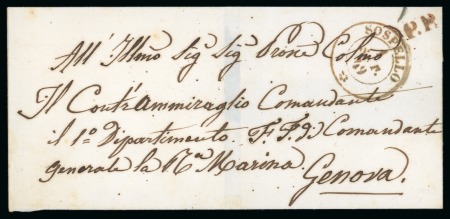 P.P.
SOSPELLO
All' Illmo Sig Sig Prone Colmo
Il Contr'Ammiraglio Comandante
il 1º Dipartimento F.F. di Comandante
generale la Ra Marina
Genova.